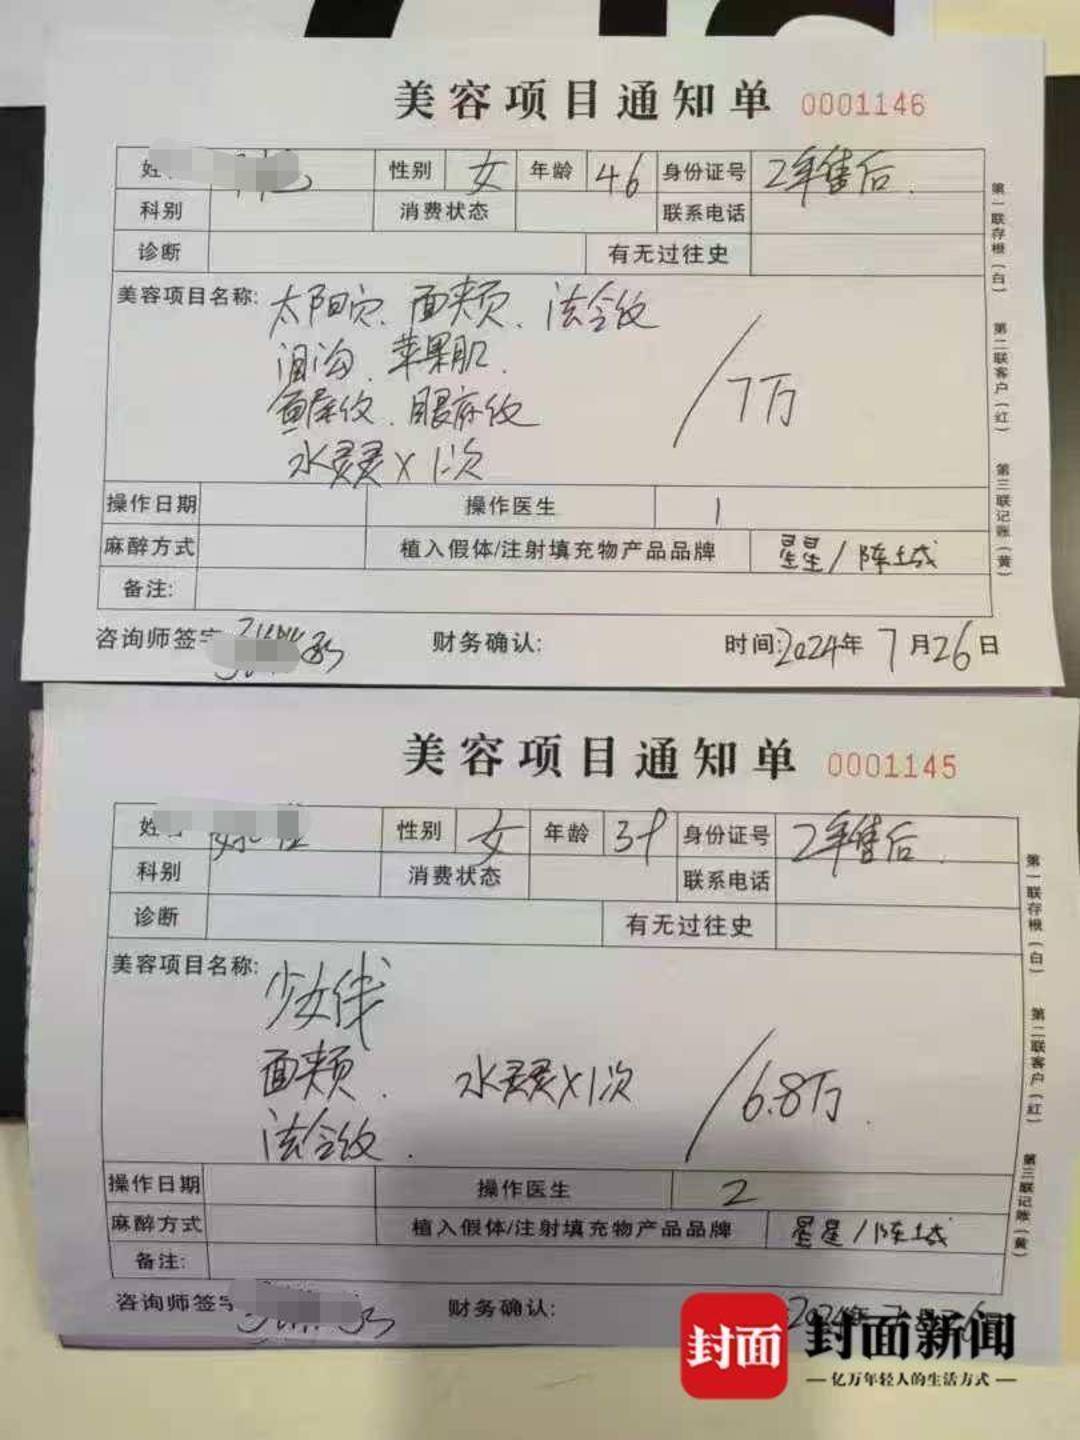 美容项目通知单 0001146
性别 女 年龄 46 身份证号 2年售后
科别 消费状态 联系电话
诊断 有无过往史
美容项目名称: 太阳穴、面颊、法令纹
泪沟、苹果肌、
鱼尾纹、眼底纹
水灵灵X1次 /7万
操作日期 操作医生 1
麻醉方式 植入假体/注射填充物产品品牌 星星/陈城
备注:
咨询师签字 财务确认: 时间:2024年7月26日
第一联存根(白) 第二联客户(红) 第三联记账(黄)
美容项目通知单 0001145
性别 女 年龄 39 身份证号 2年售后
科别 消费状态 联系电话
诊断 有无过往史
美容项目名称: 少女线
面颊、 水灵灵X1次 /6.8万
法令纹.
操作日期 操作医生 2
麻醉方式 植入假体/注射填充物产品品牌 星星/陈城
备注:
咨询师签字 财务确认: 2024年7月26
第一联存根(白) 第二联客户(红) 第三联记账(黄)
封面 封面新闻
亿万年轻人的生活方式